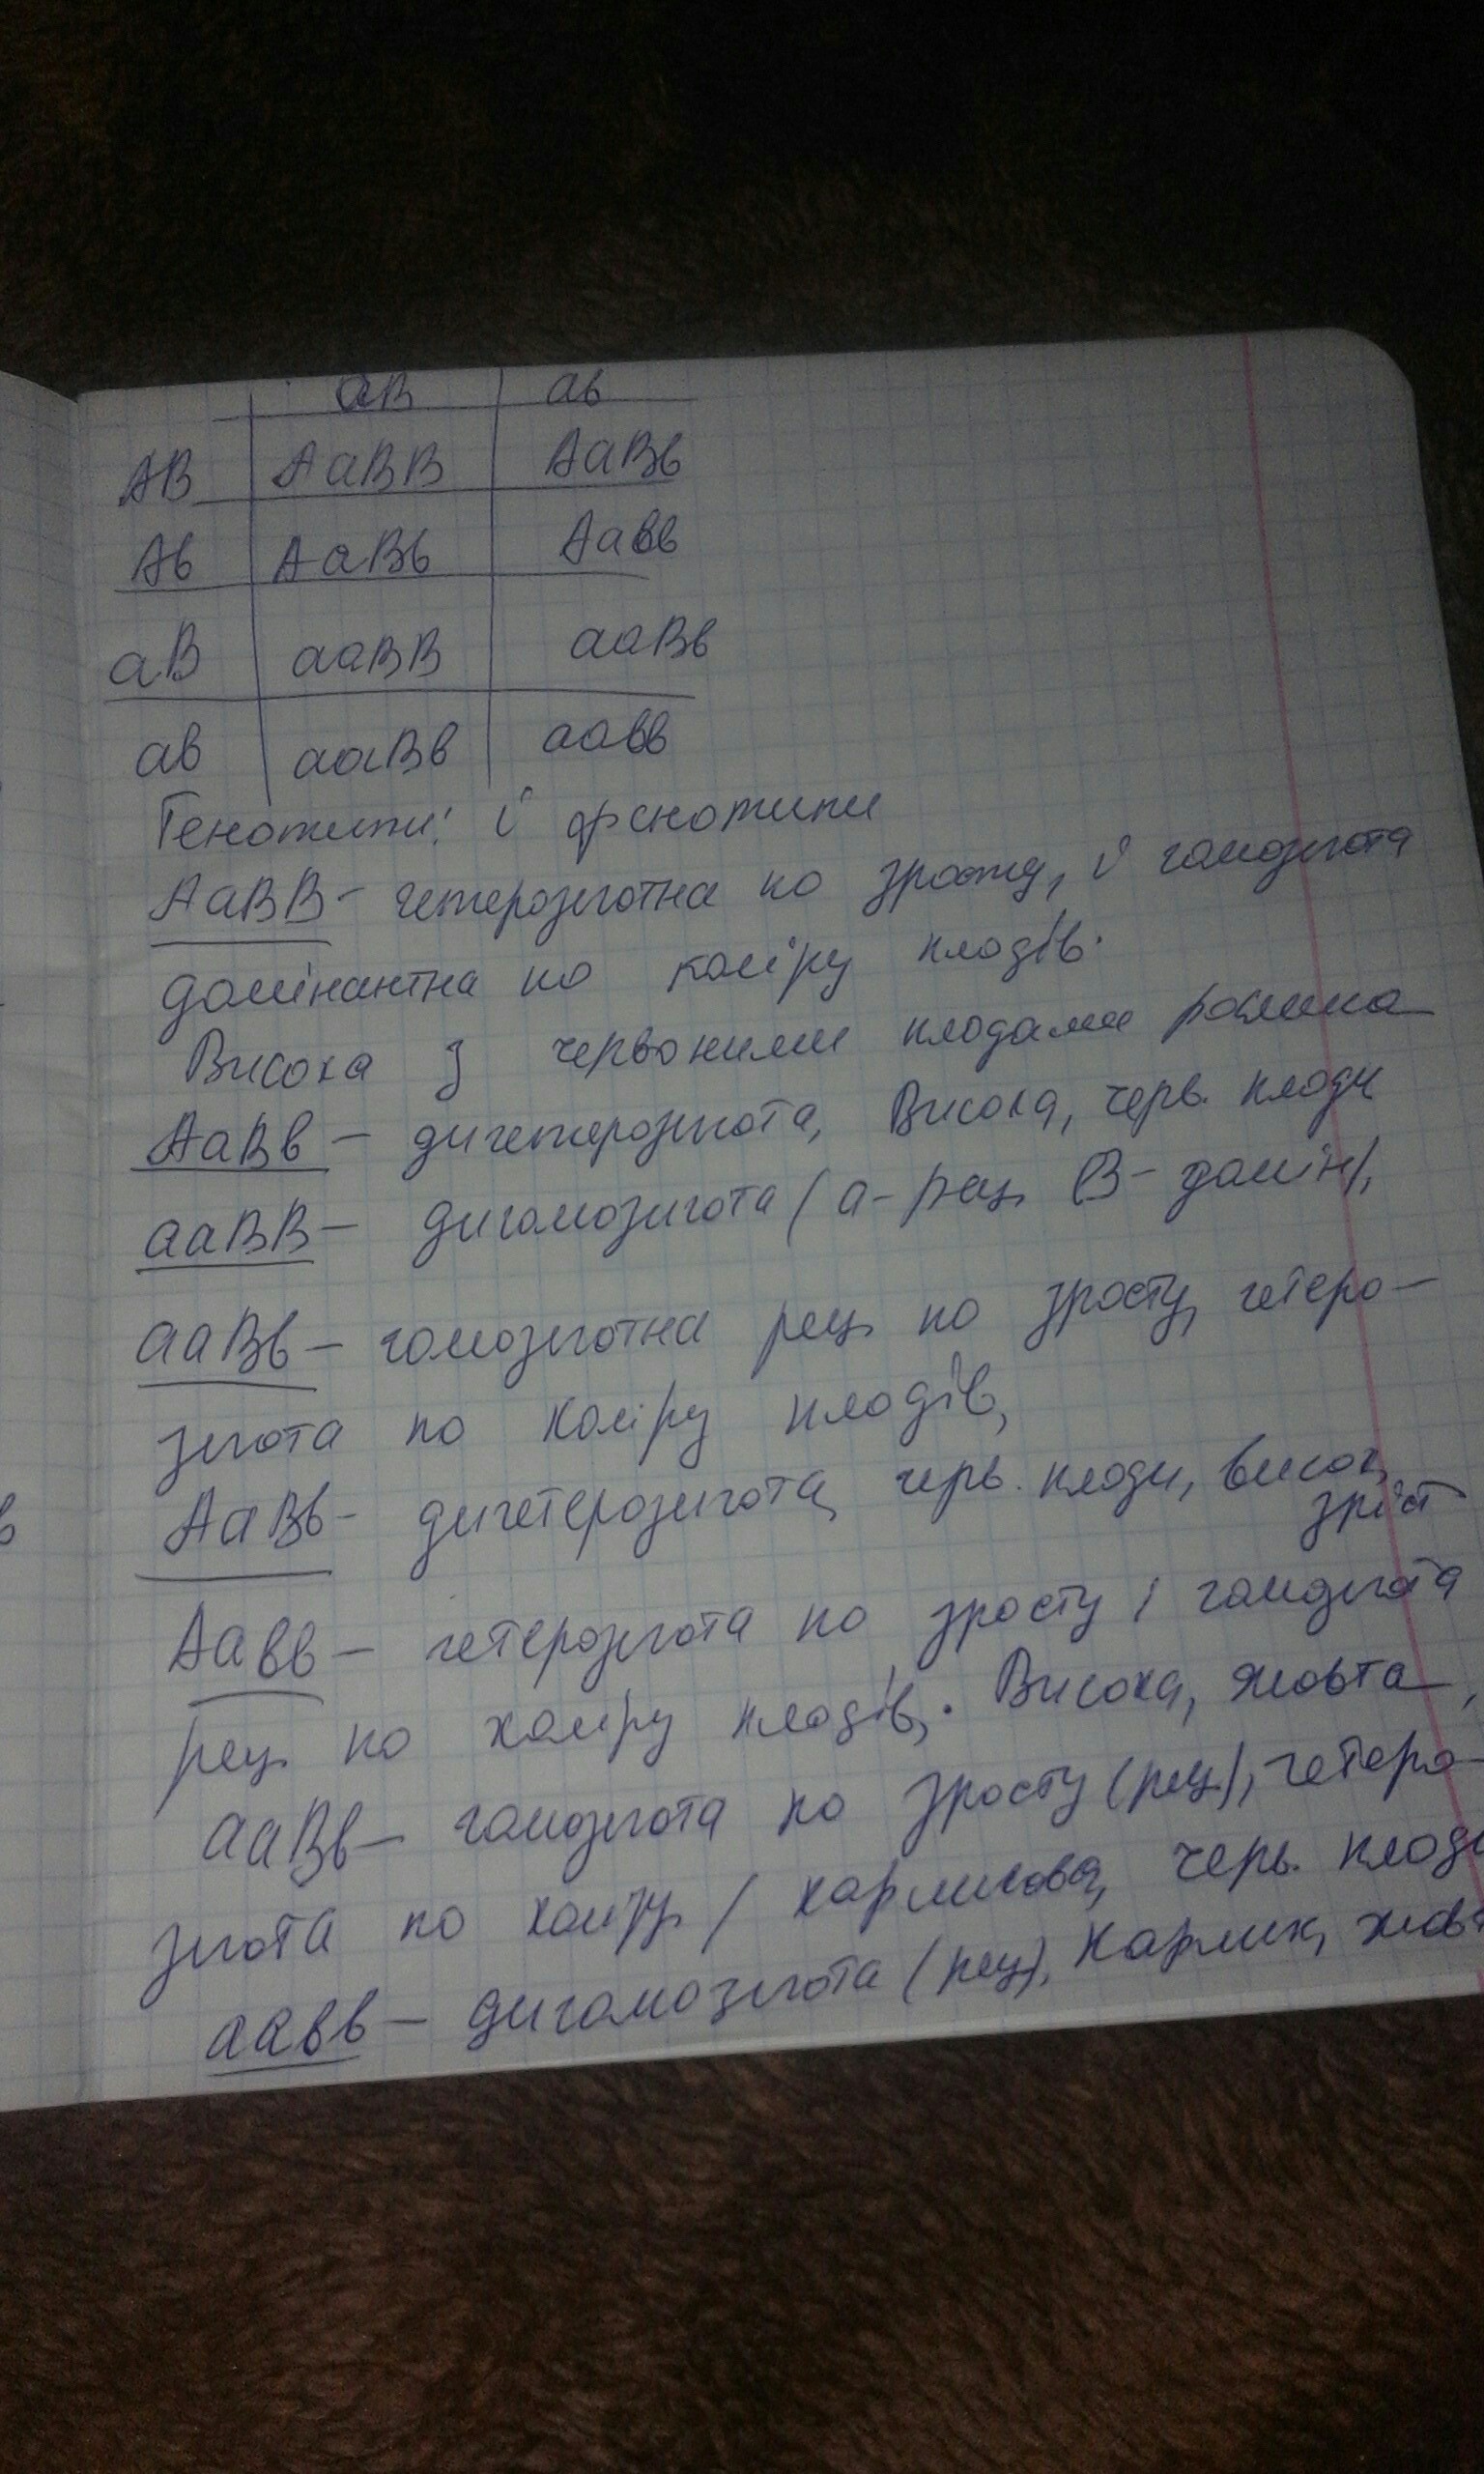 аВ ав
АВ АаВВ АаВв
Ав АаВв Аавв
аВ ааВВ ааВв
ав ааВв аавв
Генотипи: і фенотипи
АаВВ - гетерозиготна по зросту, і гомозигота
домінантна по коліру плодів.
Висока з червоними плодами рослина
АаВв - дигетерозигота, Висока, черв. плоди
ааВВ - дигомозигота (а - рец. В - домін),
ааВв - гомозиготна рец. по зросту, гетеро-
зигота по коліру плодів,
АаВв - дигетерозигота, черв. плоди, висок.
зріст
Аавв - гетерозигота по зросту і гомозигота
рец. по коліру плодів,. Висока, жовта,
ааВв - гомозигота по зросту (рец.), гетеро-
зигота по / карликова, черв. плоди
аавв - дигомозигота (рец), Карлик,